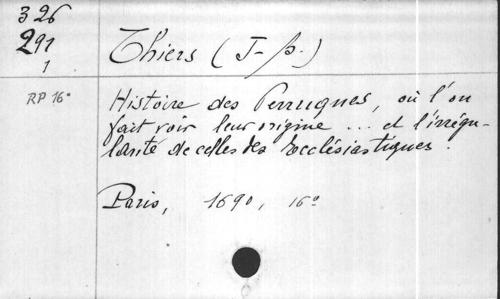 326
291
1
Thiers (J-B.)
RP 16°
Histoire des Perruques, où l'on
fait voir leur origine ... et l'irrégu-
larité de celles des Ecclésiastiques.
Paris, 1690, 16°